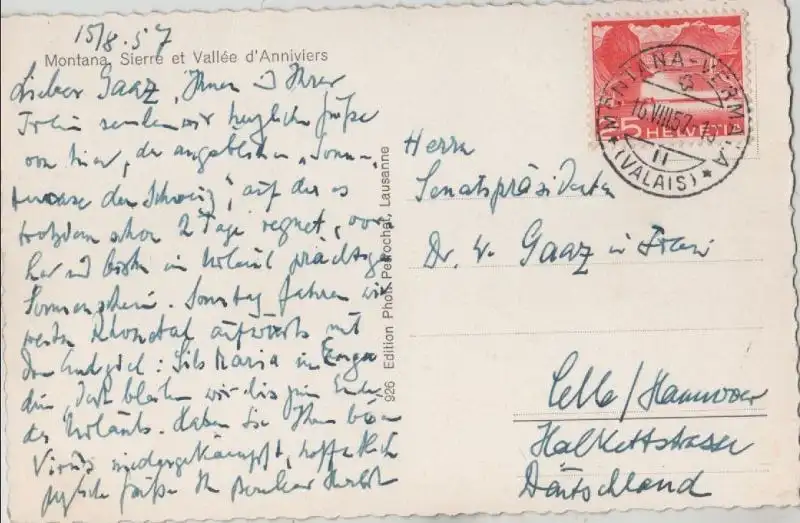 15/8.57
Montana, Sierre et Vallée d'Anniviers
Lieber Gaaz, Ihnen u Ihrer
Frau senden wir herzliche Grüße
von hier, der angeblichen "Sonnen-
terrasse der Schweiz", auf der es
trotzdem schon 2 Tage regnet, vor-
her und hatten im Urlaub prächtigen
Sonnenschein. Sonntag fahren wir
weiter Rhonetal aufwärts mit
dem Endziel: Sils Maria im Enga-
din, dort bleiben wir bis zum Ende
des Urlaubs. Haben Sie Ihren bösen
Virus niedergekämpft, hoffentlich
Herzliche Grüße Ihr
926 Edition Phot. Perrochet, Lausanne
25 HELVETIA
MONTANA-VERMALA
15.VIII.57.
II
(VALAIS)
Herrn
Senatspräsidenten
Dr. W. Gaaz u Frau
Celle/Hannover
Halkettstrasse
Deutschland